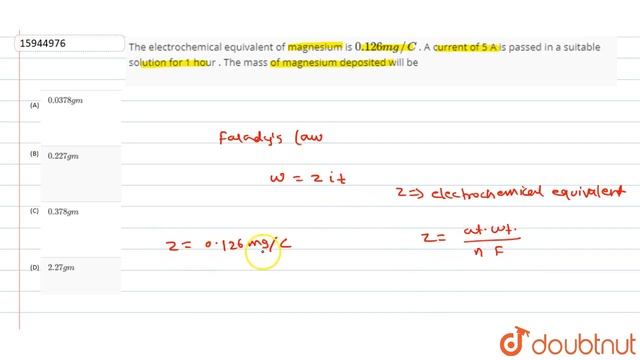 15944976
The electrochemical equivalent of magnesium is 0.126mg/C . A current of 5 A is passed in a suitable
solution for 1 hour . The mass of magnesium deposited will be
(A) 0.0378gm
(B) 0.227gm
(C) 0.378gm
(D) 2.27gm
Farady's law
w = z i t
z => electrochemical equivalent
z = 0.126 mg/C
z = at. wt. / n F
doubtnut